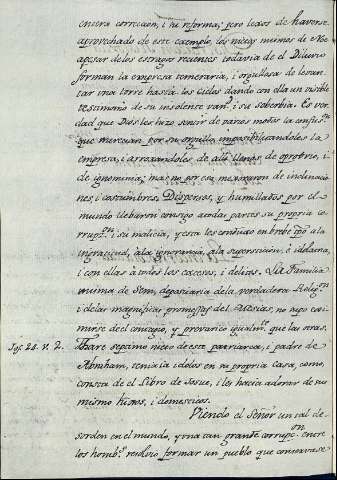 entera correccion, i su reforma; pero lexos de haverse
aprovechado de este exemplo, los nietos mismos de Noe
apesar de los estragos recientes todavia de el Diluvio
forman la empresa temeraria, i orgullosa de levan-
tar una torre hasta los Cielos dando con ella un visible
testimonio de su insolente vanid. i su soberbia. Es ver-
dad que Dios les hizo sentir de varios modos la confusn.
que merecian por su orgullo imposibilitandoles la
empresa, i arrojandoles de alli llenos de oprobrio, i
de ignominia; mas no por eso mejoraron de inclinacio-
nes, i costumbres. Dispersos, y humillados por el
mundo llebaron consigo atodas partes su propia cor-
rupcn. i su malicia, y esta los conduxo en brebe tpo. à la
ingratitud, à la ignorancia, à la supersticion, è idolatria,
i con ellas à todos los excesos, i delitos. La Familia
misma de Sem, depositaria de la verdadera Religon
i de las magnificas promesas del Mesias, no supo exi-
mirse de el contagio, y prevarico igualmte. que las otras.
Jos. 24. v. 2. Thare septimo nieto de este patriarca, i padre de
Abraham, tenia idolos en su propia casa, como
consta de el Libro de Josue, i les hacia adorar de sus
mismos hijos, i domesticos.
Viendo el Señor un tal de-
sorden en el mundo, y una tan grande corrupcon. entre
los hombs. resolvio formar un pueblo que conservase